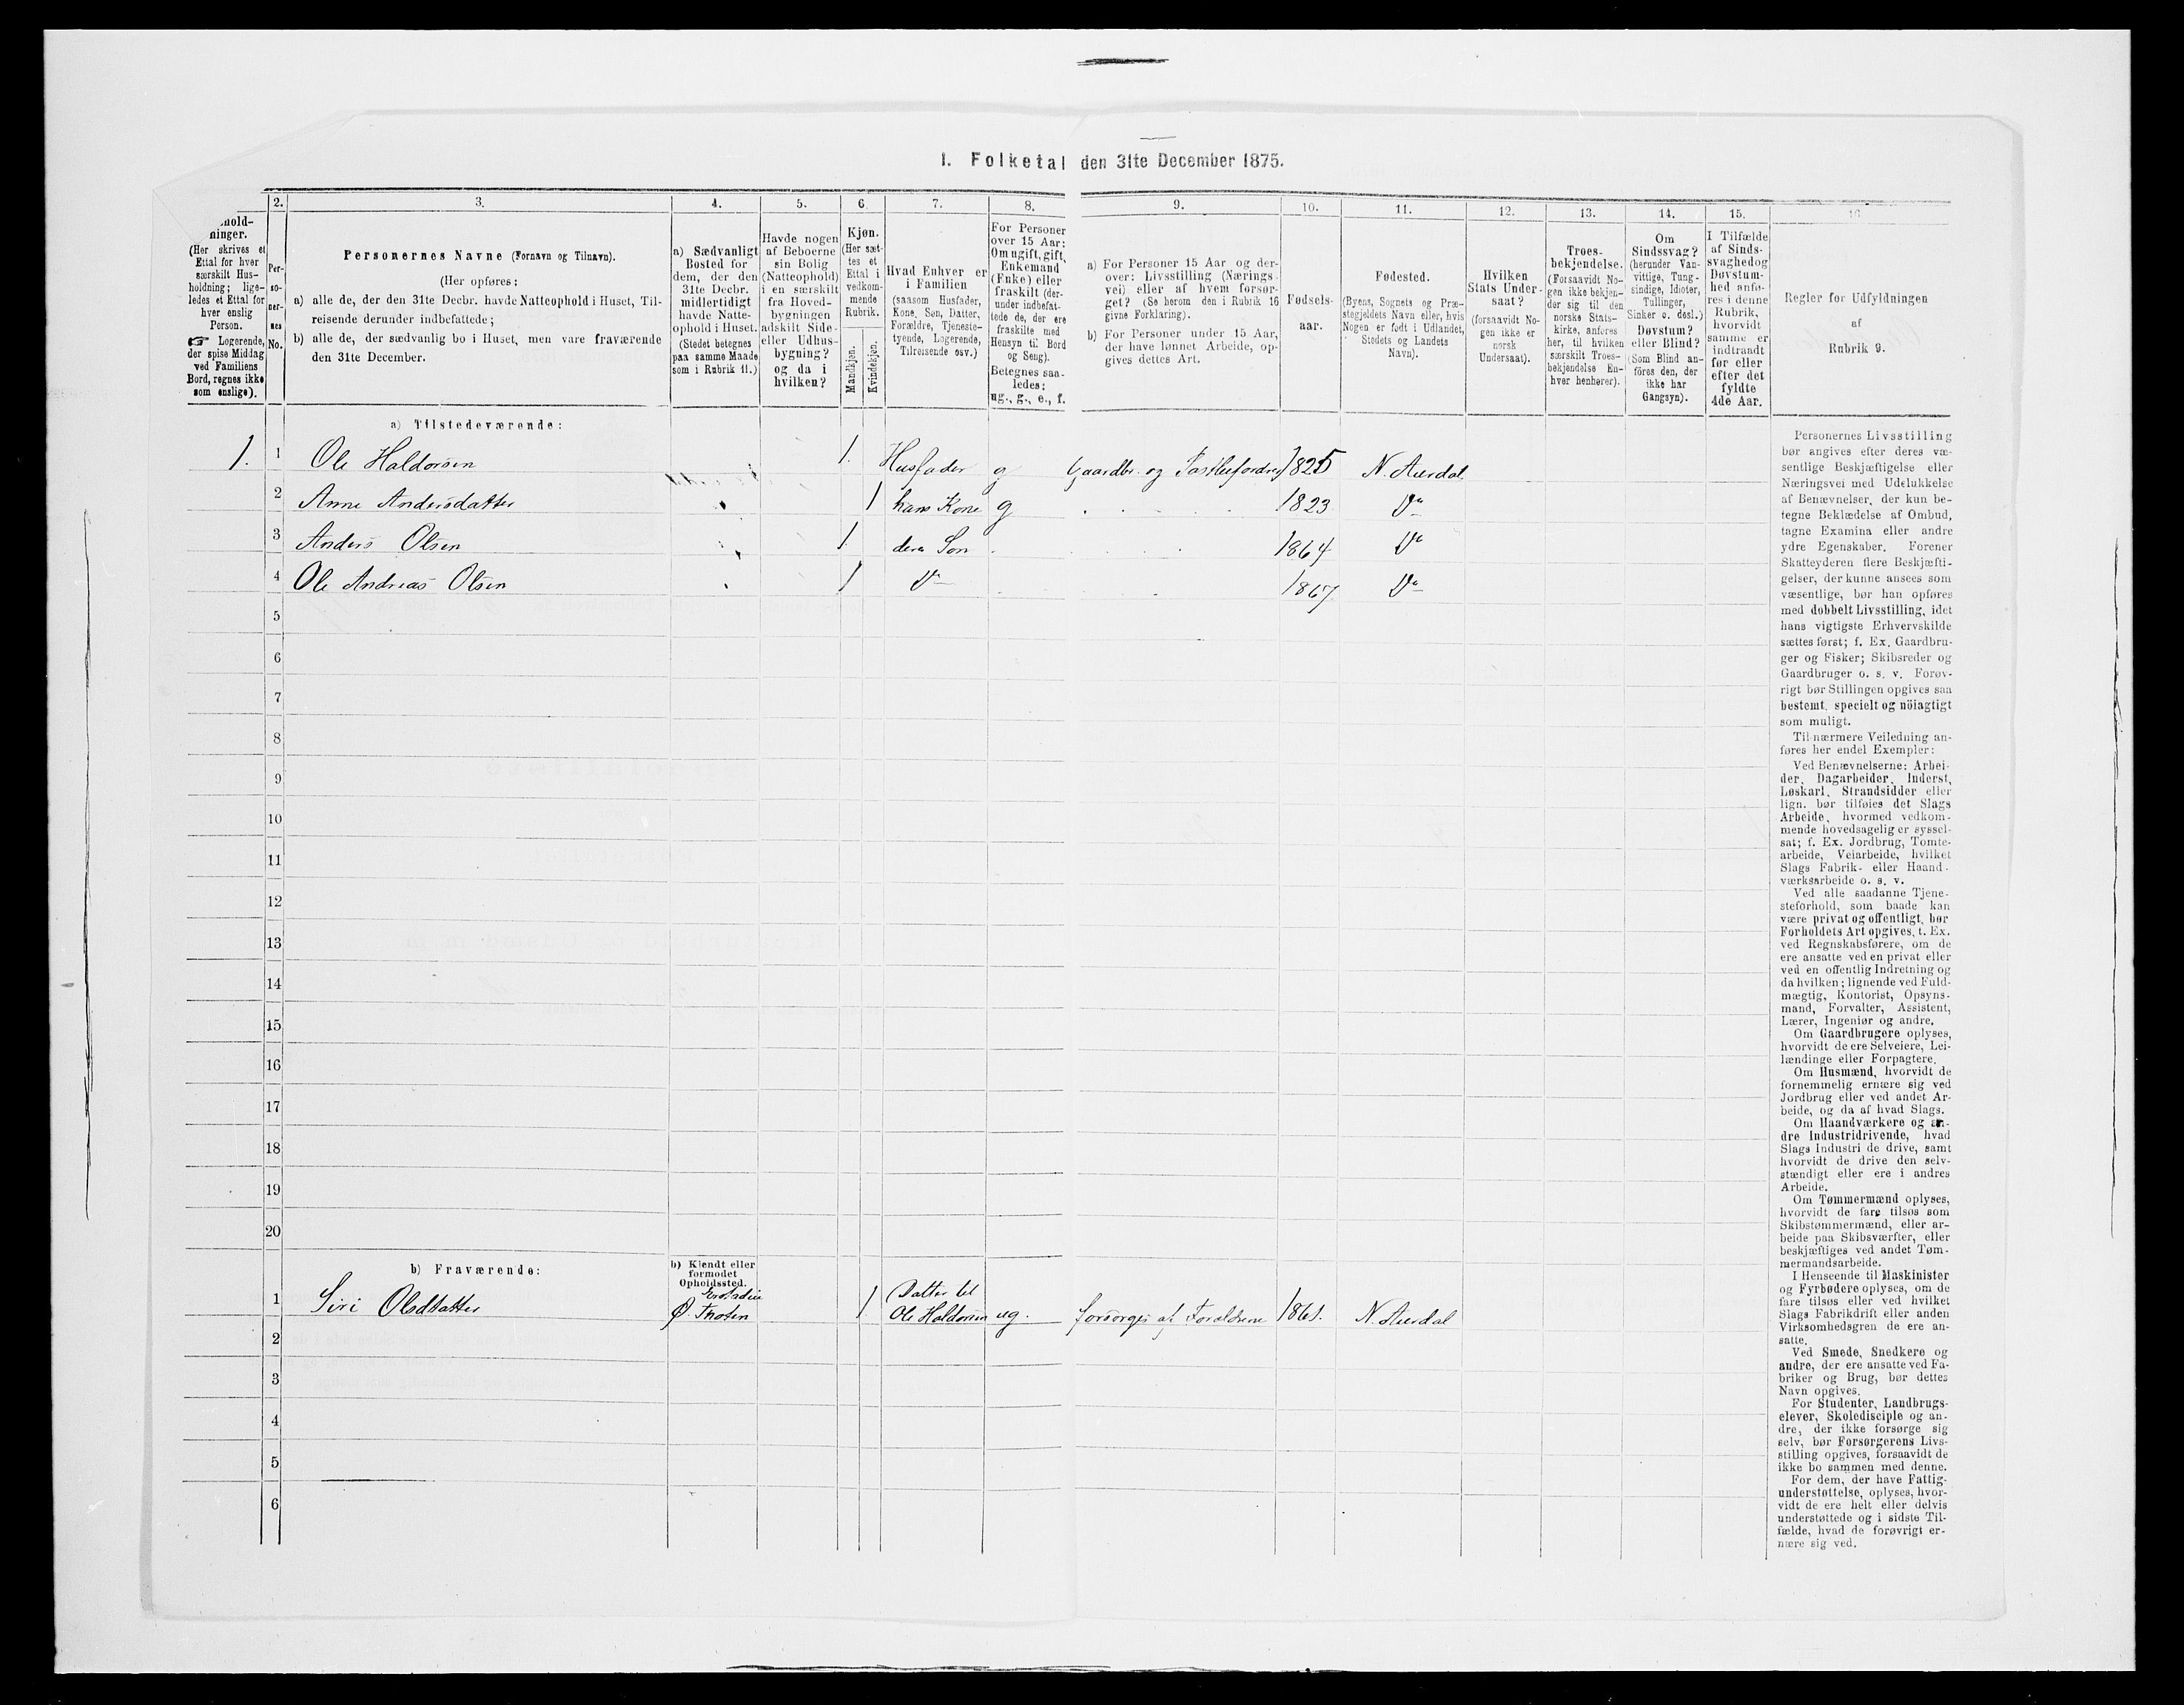 1. Folketal den 31te December 1875.
2. 3. 4. 5. 6. 7. 8. 9. 10. 11. 12. 13. 14. 15. 16
hold-
ninger.
(Her skrives et
Ettal for hver
særskilt Hus-
holdning; lige-
ledes et Ettal for
hver enslig
Person.
☞ Logerende,
der spise Middag
ved Familiens
Bord, regnes ikke
som enslige).
Per-
so-
ner-
nes
No.
Personernes Navne (Fornavn og Tilnavn).
(Her opføres:
a) alle de, der den 31te Decbr. havde Natteophold i Huset, Til-
reisende derunder indbefattede;
b) alle de, der sædvanlig bo i Huset, men vare fraværende
den 31te December.
a) Sædvanligt
Bosted for
dem, der den
31te Decbr.
midlertidigt
havde Natte-
ophold i Huset.
(Stedet betegnes
paa samme Maade
som i Rubrik 11.)
Havde nogen
af Beboerne
sin Bolig
(Natteophold)
i en særskilt
fra Hoved-
bygningen
adskilt Side-
eller Udhus-
bygning?
og da i
hvilken?
Kjøn.
(Her sæt-
tes et
Ettal i
vedkom-
mende
Rubrik.
Mandkjøn.
Kvindekjøn.
Hvad Enhver er
i Familien
(saasom Husfader,
Kone, Søn, Datter,
Forældre, Tjeneste-
tyende, Logerende,
Tilreisende osv.)
For Personer
over 15 Aar:
Om ugift, gift,
Enkemand
(Enke) eller
fraskilt (der-
under indbefat-
tede de, der ere
fraskilte med
Hensyn til Bord
og Seng).
Betegnes saa-
ledes:
ug., g., e., f.
a) For Personer 15 Aar og der-
over: Livsstilling (Nærings-
vei) eller af hvem forsør-
get? (Se herom den i Rubrik 16
givne Forklaring).
b) For Personer under 15 Aar,
der have lønnet Arbeide, op-
gives dettes Art.
Fødsels-
aar.
Fødested.
(Byens, Sognets og Præ-
stegjeldets Navn eller, hvis
Nogen er født i Udlandet,
Stedets og Landets
Navn).
Hvilken
Stats Under-
saat?
(forsaavidt No-
gen ikke er
norsk
Undersaat).
Troes-
bekjendelse.
(Forsaavidt No-
gen ikke bekjen-
der sig til den
norske Stats-
kirke, anføres
her, til hvilken
særskilt Troes-
bekjendelse En-
hver henhører).
Om
Sindssvag?
(herunder Van-
vittige, Tung-
sindige, Idioter,
Tullinger,
Sinker o. desl.)
Døvstum?
eller Blind?
(Som Blind an-
føres den, der
ikke har
Gangsyn).
I Tilfælde
af Sinds-
svaghed og
Døvstum-
hed anfø-
res i denne
Rubrik,
hvorvidt
samme er
indtraadt
før eller
efter det
fyldte
4de Aar.
Regler for Udfyldningen
af
Rubrik 9.
a) Tilstedeværende:
1. 1 Ole Haldorsen 1. Husfader g Gaardbr. og 1825 N. Aurdal
2 Anne Andersdatter 1 hans Kone g 1823 Do
3 Anders Olsen 1. deres Søn 1864 Do
4 Ole Andreas Olsen 1 Do 1867 Do
5
6
7
8
9
10
11
12
13
14
15
16
17
18
19
20
b) Fraværende:
b) Kjendt eller
formodet
Opholdssted.
1 Siri Olsdatter Ø. Thoten 1. Datter til
Ole Haldorsen ug. forsørges af Forældrene 1861. N. Aurdal
2
3
4
5
6
Personernes Livsstilling
bør angives efter deres væ-
sentlige Beskjæftigelse eller
Næringsvei med Udelukkelse
af Benævnelser, der kun be-
tegne Beklædelse af Ombud,
tagne Examina eller andre
ydre Egenskaber. Forener
Skatteyderen flere Beskjæfti-
gelser, der kunne ansees som
væsentlige, bør han opføres
med dobbelt Livsstilling, idet
hans vigtigste Erhvervskilde
sættes først; f. Ex. Gaardbru-
ger og Fisker; Skibsreder og
Gaardbruger o. s. v. Forøv-
rigt bør Stillingen opgives saa
bestemt, specielt og nöiagtigt
som muligt.
Til nærmere Veiledning an-
føres her endel Exempler:
Ved Benævnelserne: Arbei-
der, Dagarbeider, Inderst,
Løskarl, Strandsidder eller
lign. bør tilføies det Slags
Arbeide, hvormed vedkom-
mende hovedsagelig er syssel-
sat; f. Ex. Jordbrug, Tomte-
arbeide, Veiarbeide, hvilket
Slags Fabrik- eller Haand-
værksarbeide o. s. v.
Ved alle saadanne Tjene-
steforhold, som baade kan
være privat og offentligt, bør
Forholdets Art opgives, t. Ex.
ved Regnskabsførere, om de
ere ansatte ved en privat eller
ved en offentlig Indretning og
da hvilken; lignende ved Fuld-
mægtig, Kontorist, Opsyns-
mand, Forvalter, Assistent,
Lærer, Ingeniør og andre.
Om Gaardbrugere oplyses,
hvorvidt de ere Selveiere, Lei-
lændinge eller Forpagtere.
Om Husmænd, hvorvidt de
fornemmelig ernære sig ved
Jordbrug eller ved andet Ar-
beide, og da af hvad Slags.
Om Haandværkere og an-
dre Industridrivende, hvad
Slags Industri de drive, samt
hvorvidt de drive den selv-
stændigt eller ere i andres
Arbeide.
Om Tømmermænd oplyses,
hvorvidt de fare tilsøs som
Skibstømmermænd, eller ar-
beide paa Skibsværfter, eller
beskjæftiges ved andet Tøm-
mermandsarbeide.
I Henseende til Maskinister
og Fyrbødere oplyses, om de
fare tilsøs eller ved hvilket
Slags Fabrikdrift eller anden
Virksomhedsgren de ere an-
satte.
Ved Smede, Snedkere og
andre, der ere ansatte ved Fa-
briker og Brug, bør dettes
Navn opgives.
For Studenter, Landbrugs-
elever, Skoledisciple og an-
dre, der ikke forsørge sig
selv, bør Forsørgerens Livs-
stilling opgives, forsaavidt de
ikke bo sammen med denne.
For dem, der have Fattig-
understøttelse, oplyses, hvor-
vidt de ere helt eller delvis
understøttede og i sidste Til-
fælde, hvad de forøvrigt er-
nære sig ved.